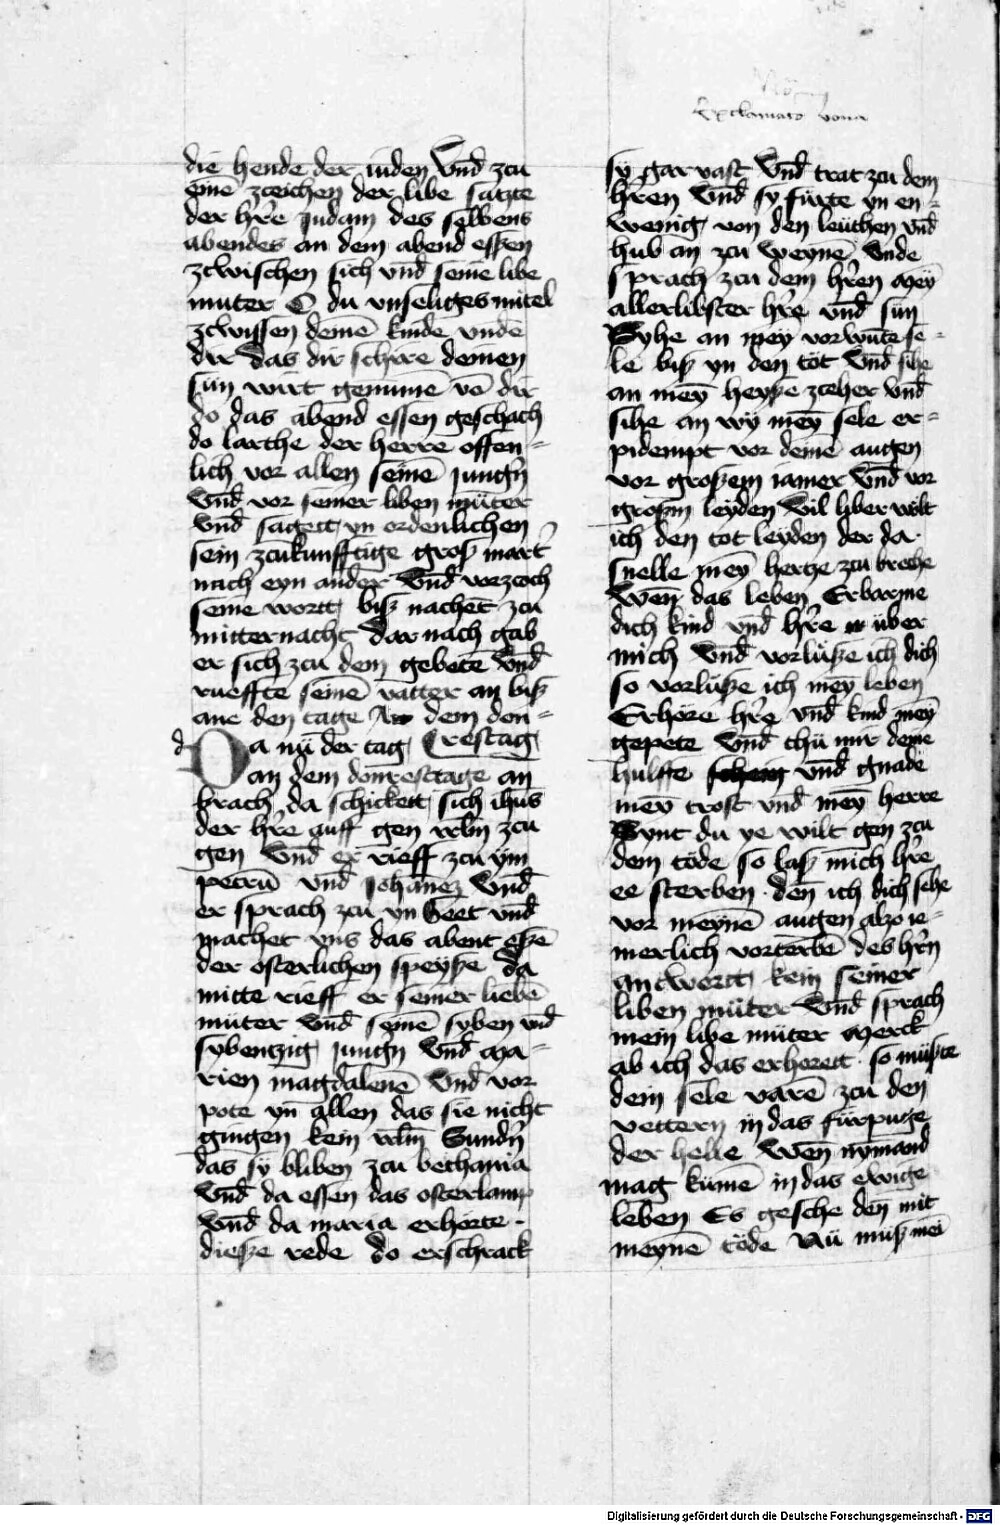 Exclamacio
die hende der iuden Vnd̄ zcu
eine zceichen der libe satzte
der hr̄e Judam des selbens
abendes an dem abend essen
zcwischen sich vnd̄ seine libe
muter O du vnseliges mitel
zcwissen deinē kinde vnde
dir Das dir schire deinen
sun wirt genumē vō dir
do das abend essen geschach
do larthe der herre offen=
lich vor allen seinē jungn̄
Vnd̄ vor seiner liben müter
Vnd̄ sagett yn ordenlichen
sein zcukunfftige groß mart̄
nach eyn ander Vnd̄ vorzcoch
seine wortt biß nachet zcu
mitternacht Dar nach gab
er sich zcu dem gebete Vnd̄
rueffte seinē vatter an biß
ane den tage An dem don=
Da nū der tag restag
an dem donrestage an
brach da schickett sich ihūs
der hr̄e auff gen irlm̄ zcu
gen Vnd̄ er rieff zcu ym
petrū vnd̄ Johānez Vnd̄
er sprach zcu yn Geet vnd̄
machet vns das abent eßē
der osterlichen speyße Da
mitte rieff er seiner liebē
müter Vnd̄ seinē syben vnd̄
sybentzig jungn̄ Vnd̄ Ma=
rien magdalenē Vnd̄ vor
pote yn̄ allen das sie nicht
gingen kein irlm̄ Sundn̄
das sy bliben zcu bethania
Vnd̄ da essen das osterlamp
Vnd̄ da maria erhörte
dieße rede do erschrack
sy gar vast Vnd̄ trat zcu dem
hr̄en Vnd̄ sy fürte yn en=
wenig von den leüthen vnd̄
hub an zcu weynē Vnde
sprach zcu dem hr̄en Mey̅
allerlibster hr̄e vnd̄ sün
Syhe an mey̅ vorwūte se=
le biß yn den tot Vnd̄ sihe
an mey̅ heyße zceher Vnd̄
sihe an wy mey̅ sele er=
pidempt vor deinē augen
vor großem iamer Vnd̄ vor
großin leyden Vil liber wilt
ich den tot leyden der da
snelle mey̅ hertze zcu breche
Wen̄ das leben Erbarme
dich kind vnd̄ hr̄e über
mich Vnd̄ vorlüße ich dich
so vorlüße ich mey̅ leben
Erhöre hr̄e vnd̄ kind mey̅
gepete Vnd̄ thü mir deine
hulffe vnd̄ gnade
mey̅ trost vnd̄ mey̅ herre
Synt du ye wilt gen zcu
dem tōde so laß mich hr̄e
ee sterben den̄ ich dich sehe
vor meynē augen alzo ie=
merlich vorterbē des hr̄n
antwortt kein seiner
liben müter Vnd̄ sprach
mein libe müter Merck
ab ich das erhorett so müßte
dein sele varē zcu den
vettern in das fürpurge
der helle Wen̄ nymand
mag kumē in das ewige
leben Es gesche den̄ mit
meynē tōde Nū müß mei